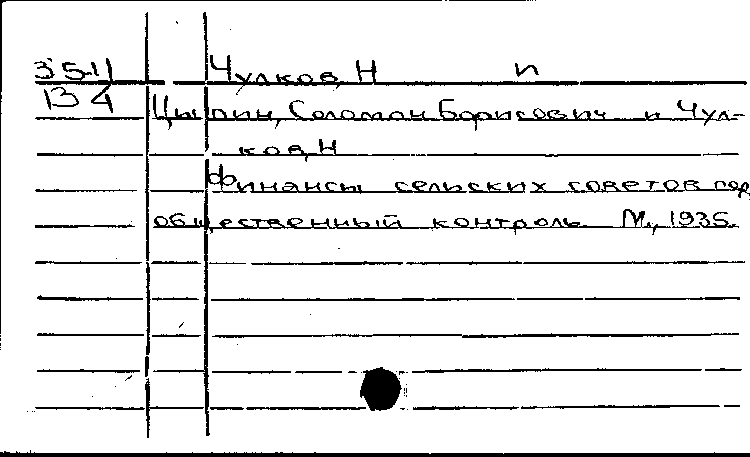 35-11 Чулков, Н п
134 Цыпин, Соломон Борисович и Чул-
ков, Н
Финансы сельских советов под
общественный контроль. М., 1935.